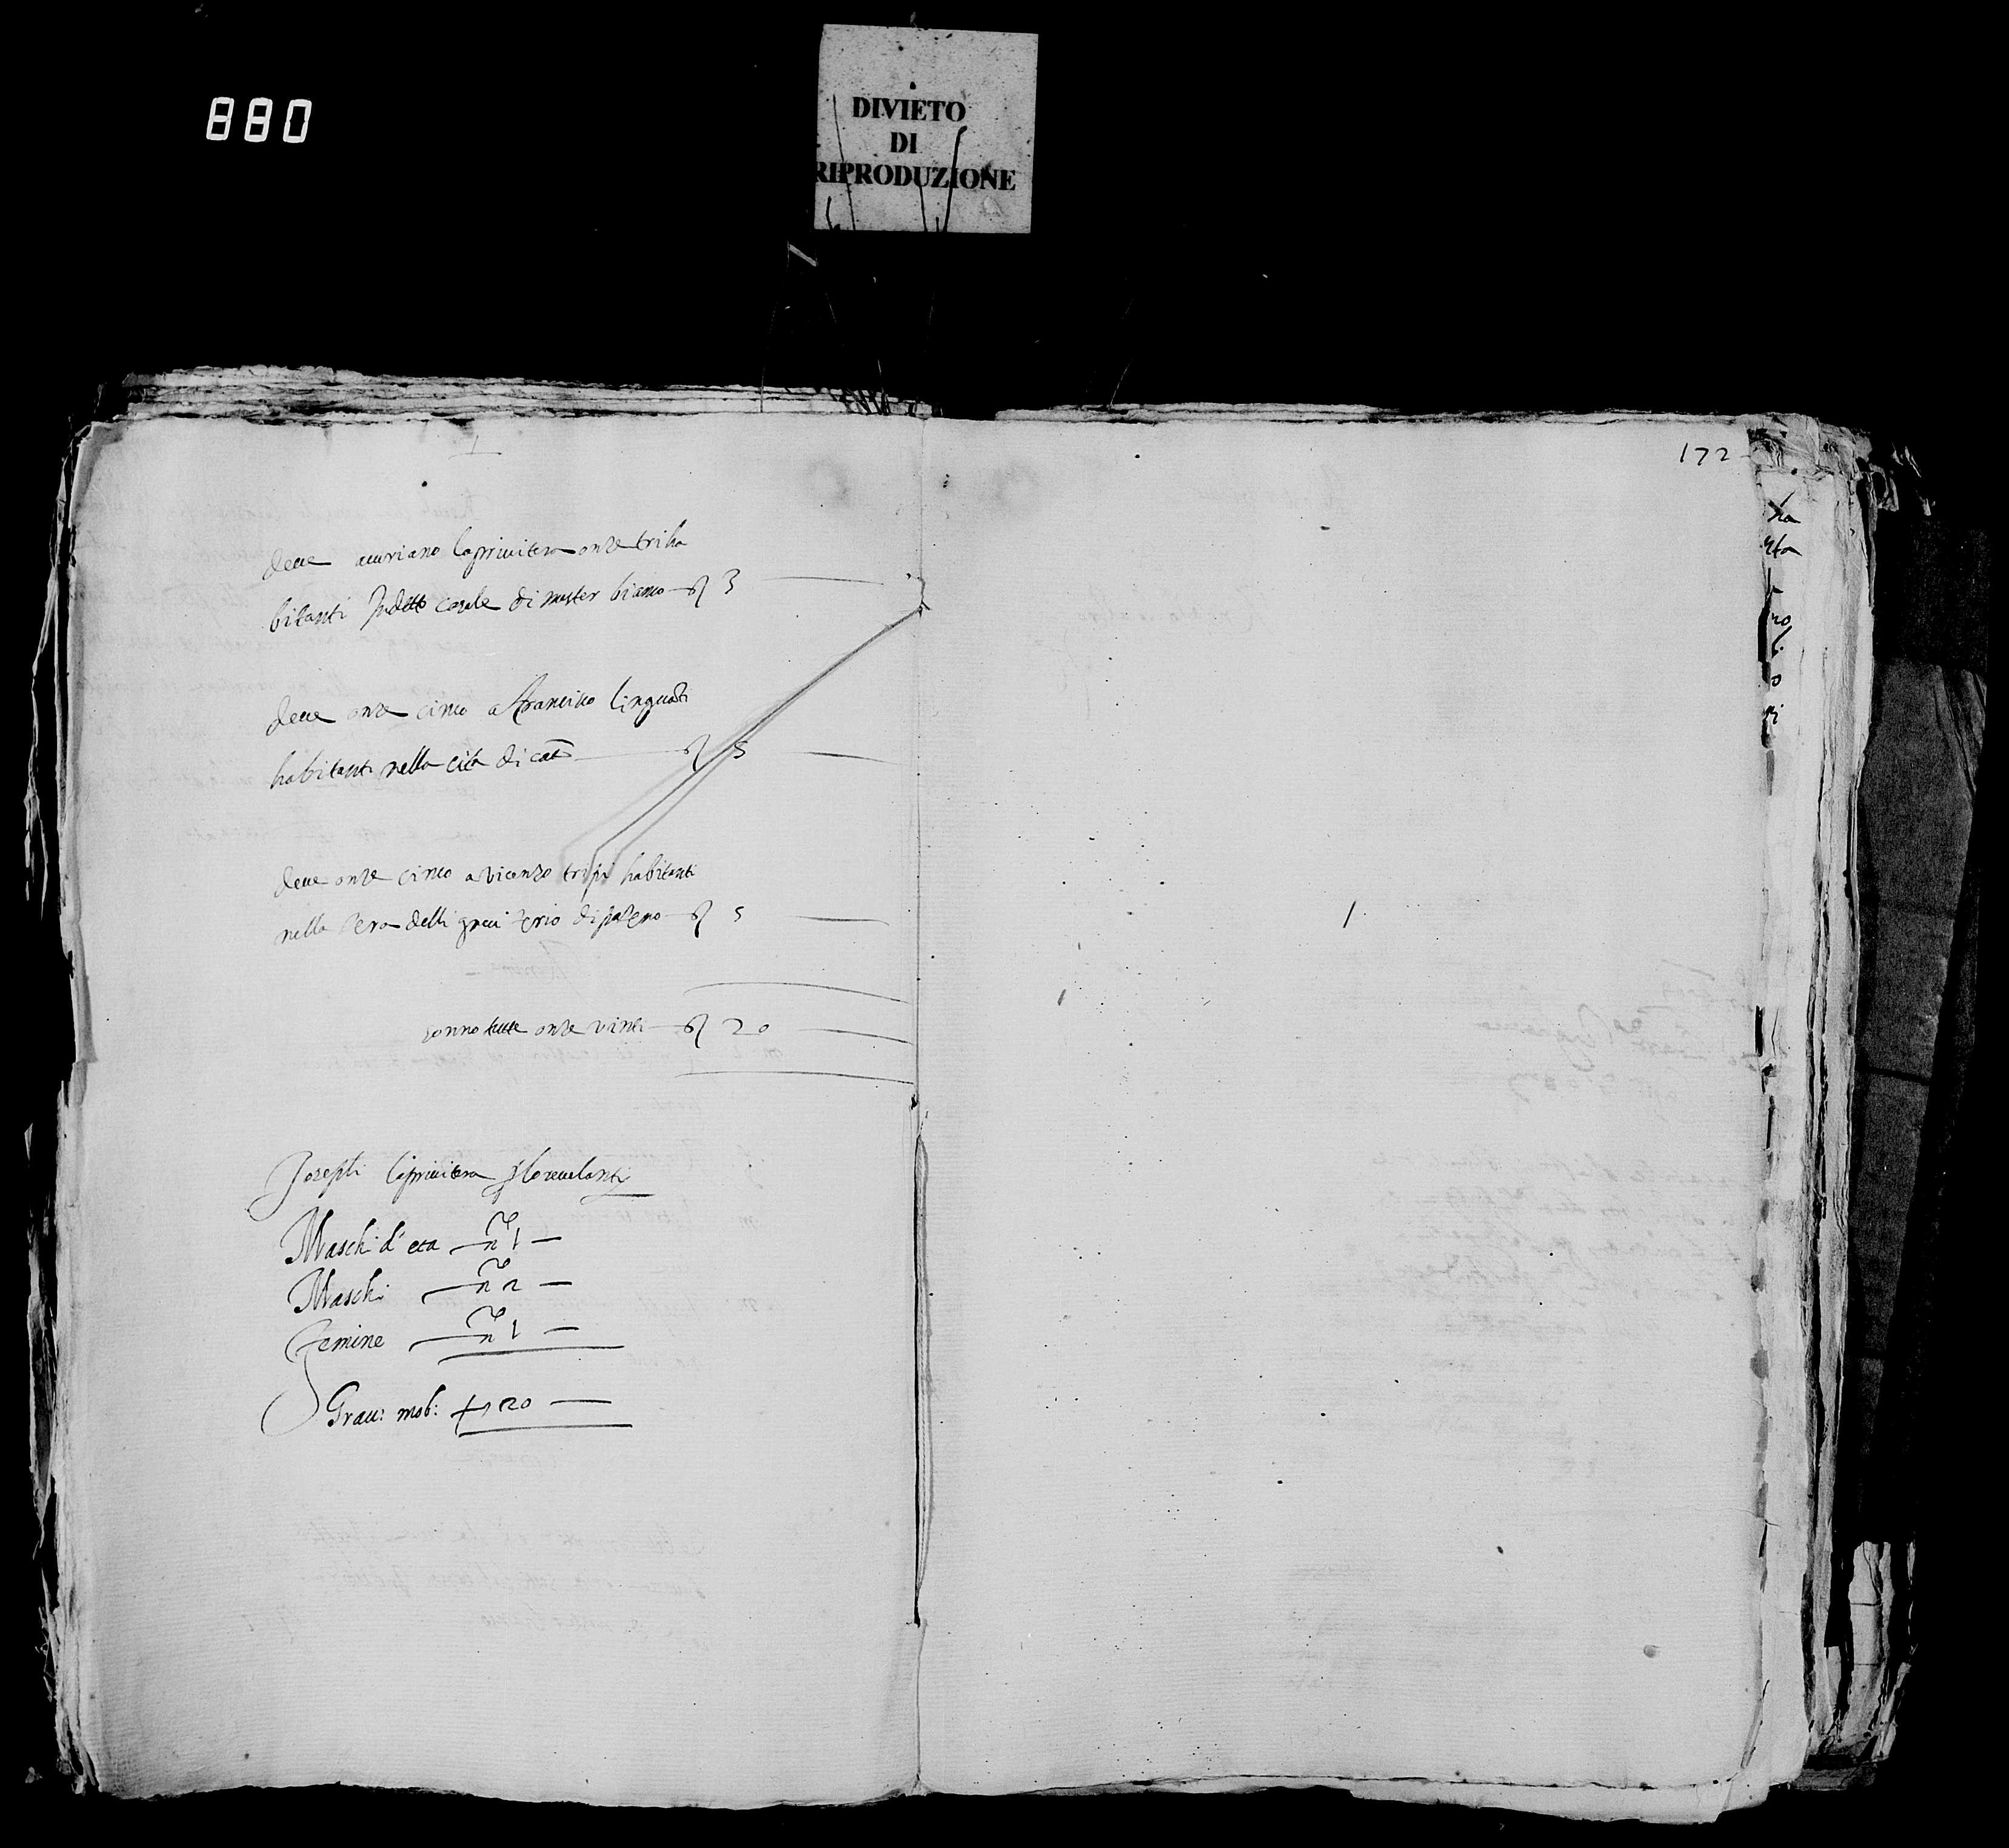 880
DIVIETO
DI
RIPRODUZIONE
172
deue auriano laprivitera onze tri ha
bitanti Indetto casale di mister bianco 3
deue onze cinco a francisco linguanti
habitanti nella cita di cat 5
deue onze cinco a vicenzo tripi habitanti
nella tera delli greci terio di paterno 5
sonno tutte onze vinti 20
Joseph laprivitera
Maschi d' eta n 1
Maschi n 2
Femine n 1
Grau: mob: 20